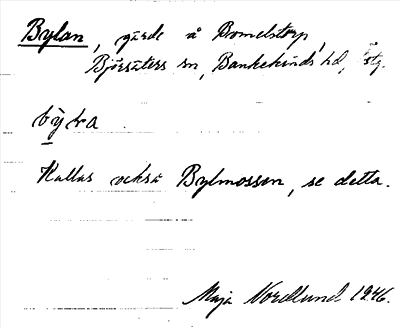 Bylan, gärde å Bromelstorp,
Björsäters sn, Bankekinds hd, Östg.
by̆ḷa
Kallas också Bylmossen, se detta.
Maja Nordlund 1946.